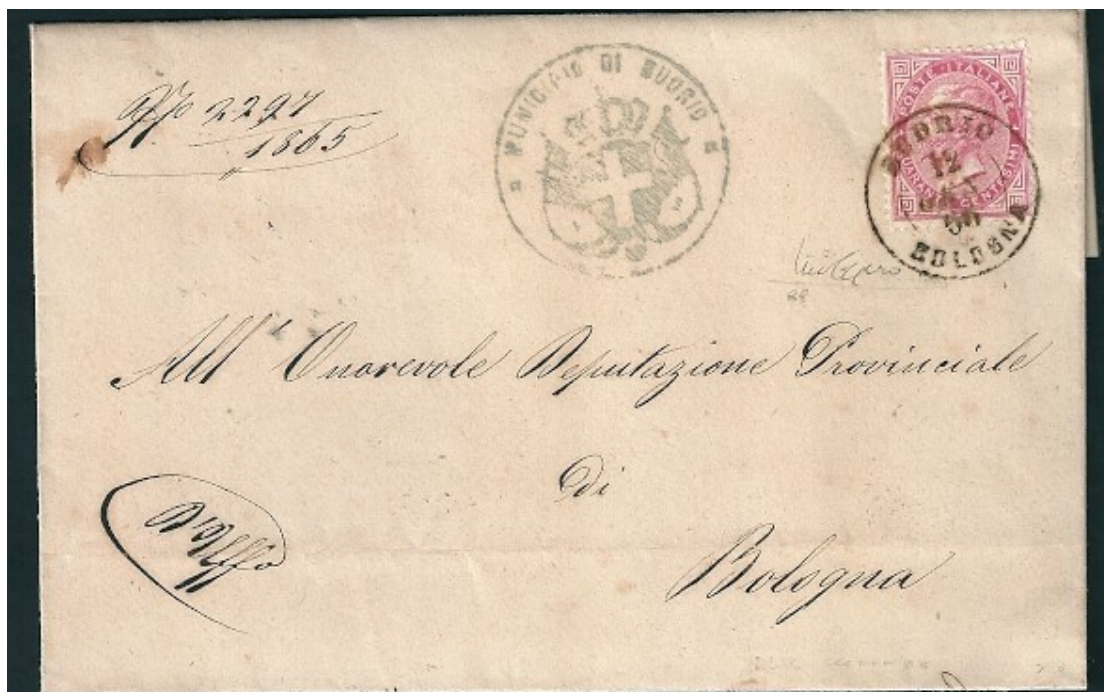 2297
1865
MUNICIPIO DI BUDRIO
POSTE ITALIANE
QUARANTA CENTESIMI
BUDRIO
12
BOLOGNA
All' Onorevole Deputazione Provinciale
di
Bologna
D'Uffo